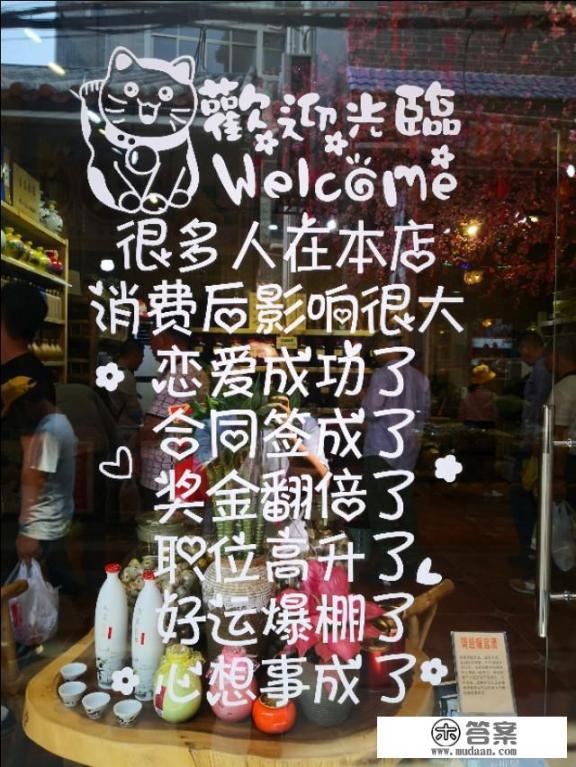 歡迎光臨
Welcome
很多人在本店
消费后影响很大
恋爱成功了
合同签成了
奖金翻倍了
职位高升了
好运爆棚了
心想事成了
答案
www.mudaan.com